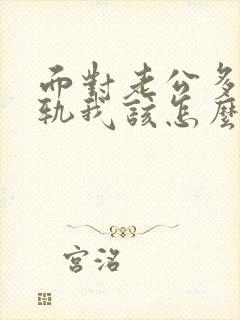 而對老公多
軌我該怎麼
宮洺